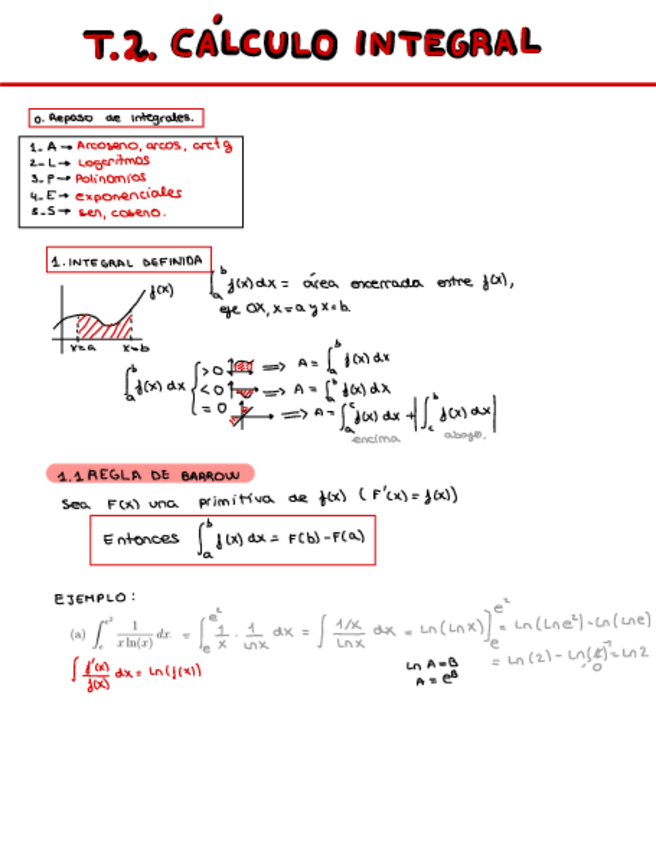 T.2. CÁLCULO INTEGRAL
0. Repaso de integrales.
1- A → Arcoseno, arcos, arctg
2- L → Logaritmos
3- P → Polinomios
4- E → exponenciales
5- S → sen, coseno.
1. INTEGRAL DEFINIDA
∫_a^b f(x) dx = área encerrada entre f(x),
eje OX, x=a y x=b.
f(x)
x=a x=b
∫_a^b f(x) dx { >0 ⟹ A = ∫_a^b f(x) dx
<0 ⟹ A = ∫_a^b f(x) dx
=0 ⟹ A = ∫_a^c f(x) dx + |∫_c^b f(x) dx|
encima abajo.
1.1 REGLA DE BARROW
Sea F(x) una primitiva de f(x) (F'(x) = f(x))
Entonces ∫_a^b f(x) dx = F(b) - F(a)
EJEMPLO:
(a) ∫_e^{e^2} 1/(x ln(x)) dx = ∫_e^{e^2} 1/x · 1/Lnx dx = ∫ (1/x)/Lnx dx = Ln(Lnx)]_e^{e^2} = Ln(Lne^2) - Ln(Lne)
= Ln(2) - Ln(1) = Ln2
0
∫ f'(x)/f(x) dx = Ln(f(x))
Ln A = B
A = e^B